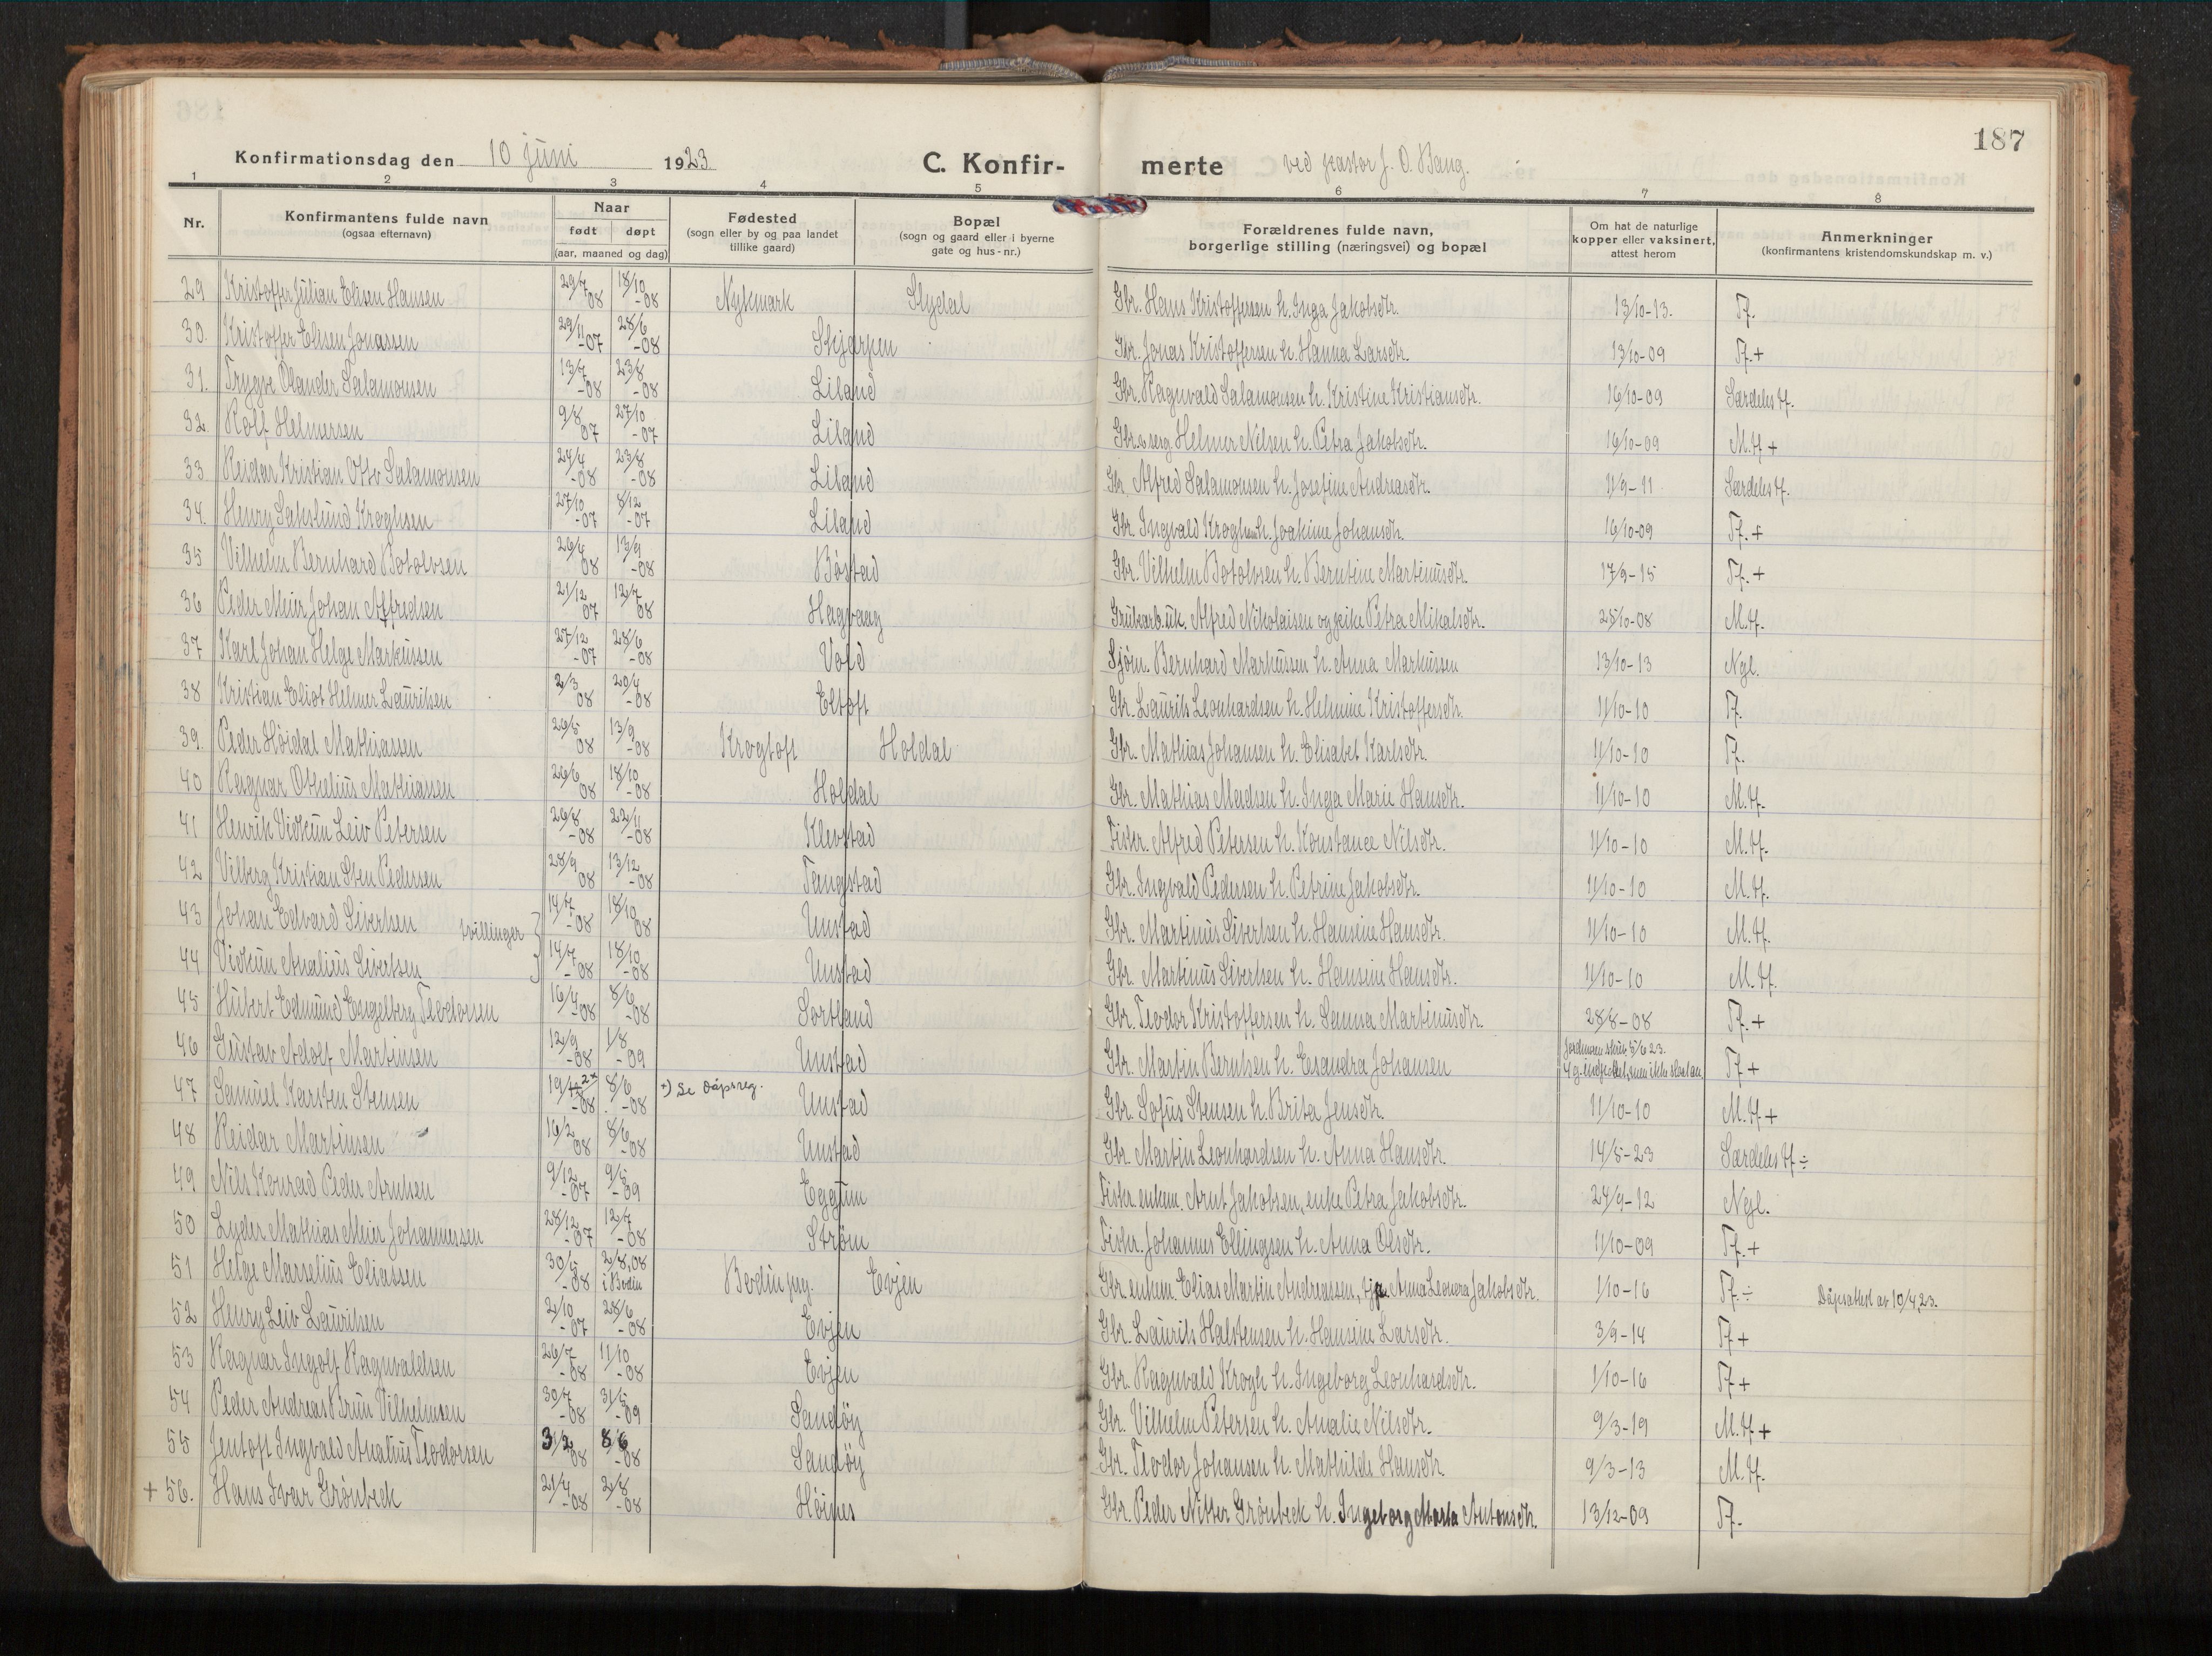 187
Konfirmationsdag den 10 juni 1923 C. Konfir- merte ved pastor J. O. Bang.
1 2 3 4 5 6 7 8
Nr. Konfirmantens fulde navn (ogsaa efternavn) Naar født døpt (aar, maaned og dag) Fødested (sogn eller by og paa landet tillike gaard) Bopæl (sogn og gaard eller i byerne gate og hus-nr.) Forældrenes fulde navn, borgerlige stilling (næringsvei) og bopæl Om hat de naturlige kopper eller vaksinert, attest herom Anmerkninger (konfirmantens kristendomskundskap m. v.)
29 Kristoffer Julian Elisen Hansen 29/7 08 18/10 -08 Nykmark Slydal Gbr. Hans Kristoffersen h. Inga Jakobsdtr. 13/10-13. Tf.
30. Kristoffer Elisen Jonassen 29/11 -07 28/6 -08 Skjerpen Gbr. Jonas Kristoffersen h. Hanna Larsdtr. 13/10-09 Tf.+
31. Trygve Olander Salamonsen 13/7 -08 23/8 -08 Liland Gbr. Ragnvald Salamonsen h. Kristine Kristiansdtr. 16/10-09 Særdeles tf.
32. Rolf Helmersen 9/8 07 27/10 -07 Liland Gbr. Helmer Nilsen h. Petra Jakobsdtr. 16/10-09 M.tf +
33 Reidar Kristian Otto Salamonsen 24/4 -08 23/8 -08 Liland Gbr. Alfred Salamonsen h. Josefine Andreasdtr. 11/9-11 Særdeles tf.
34. Henry Sakslund Kroghsen 27/10 -07 8/12 -07 Liland Gbr. Ingvald Kroghsen h. Joakime Johansdtr. 16/10-09 Tf.+
35 Vilhelm Bernhard Botolvsen 26/4 08 13/9 -08 Bøstad Gbr. Vilhelm Botolvsen h. Berntine Martinusdtr. 17/9-15 Tf.+
36 Peder Meier Johan Alfredsen 21/12 07 12/7 08 Hagvaag Grubearb. uk. Alfred Nikolaisen og pike Petra Mikalsdtr. 25/10-08 M.tf.
37 Karl Johan Helge Markussen 27/12 -07 28/6 -08 Vold Sjøm. Bernhard Markussen h. Anna Markussen 13/10-13 Ngl.
38 Kristian Eliot Helmer Lauritsen 2/3 08 20/4 -08 Eltoft Gbr. Laurits Leonhardsen h. Helmine Kristoffersdtr. 11/10-10 Tf.
39. Peder Høidal Mathiassen 26/5 08 13/9 -08 Krogtoft Holdal Gbr. Mathias Johansen h. Elisabet Karlsdtr. 11/10-10 Tf.
40 Ragnar Othelius Mathiasen 26/6 08 18/10 -08 Holdal Gbr. Mathias Madsen h. Inga Marie Hansdtr. 11/10-10 M.tf.
41 Henrik Vidkun Leiv Petersen 26/8 -08 22/11 -08 Klevstad Fisker. Alfred Petersen h. Konstance Nilsdtr. 11/10-10 M.tf.
42 Vilberg Kristian Sten Pedersen 28/9 08 13/12 -08 Tangstad Gbr. Ingvald Pedersen h. Petrine Jakobsdtr. 11/10-10 M.tf.
43 Johan Edvard Sivertsen tvillinger 14/7 -08 18/10 08 Unstad Gbr. Martinus Sivertsen h. Hansine Hansdtr. 11/10-10 M.tf.
44 Vidkun Analius Sivertsen 14/7 -08 18/10 -08 Unstad Gbr. Martinus Sivertsen h. Hansine Hansdtr. 11/10-10 M.tf.
45 Hubert Edmund Engelberg Teodorsen 16/4 -08 8/6 -08 Sortland Gbr. Teodor Kristoffersen h. Sanna Martinusdtr. 28/8-08 Tf.+
46 Gustav Adolf Martinsen 12/9 -08 1/8 -09 Unstad Gbr. Martin Berntsen h. Esandra Johansen Jordmoren skriv. 5/6 23. 4 g. indpodet, men ikke slaat an. Tf +
47 Samuel Karsten Stensen 19/2+ -08 8/6 -08 +) Se dåpsreg. Unstad Gbr. Sofus Stensen h. Brita Jensdtr. 11/10-10 M.tf+
48 Reidar Martinsen 16/2 08 8/6 -08 Unstad Gbr. Martin Leonhardsen h. Anna Hansdtr. 14/5-23 Særdeles tf ÷
49 Nils Konrad Peder Arntsen 9/12 -07 9/5 -09 Eggum Fisker. enkem. Arnt Jakobsen, enke Petra Jakobsdtr. 24/9-12 Ngl.
50 Lyder Mathias Meier Johannessen 28/12 -07 12/7 -08 Strøm Fisker. Johannes Ellingsen h. Anna Olsdtr. 11/10-09 Tf.+
51 Helge Marselius Eliassen 30/5 -08 2/8,08 i Bodin Bodin pgj. Evjen Gbr. enkem. Elias Martin Andreassen, Anna Leonora Jakobsdtr. 1/10-16 Tf.÷ Dåpsattest av 10/4,23.
52 Henry Leiv Lauritsen 2/10 -07 28/6 -08 Evjen Gbr. Laurits Halstensen h. Hansine Larsdtr. 3/9-14 Tf+
53 Ragnar Ingolf Ragnvaldsen 26/7 -08 11/10 -08 Evjen Gbr. Ragnvald Krogh h. Ingeborg Leonhardsdtr. 1/10-16 Tf+
54 Peder Andreas Brun Vilhelmsen 30/7 -08 31/5 -09 Sandøy Gbr. Vilhelm Petersen h. Amalie Nilsdtr. 9/3-19 M.tf+
55 Jentoft Ingvald Analius Teodorsen 3/2 08 8/6 -08 Sandøy Gbr. Teodor Johansen h. Mathilde Hansdtr. 9/3-13 M.tf.
+ 56. Hans Ivar Grønbeck 21/4 -08 2/8 -08 Høines Gbr. Peder Nitter Grønbeck h. Ingeborg Marta Antonsdtr. 13/12-09 Tf.